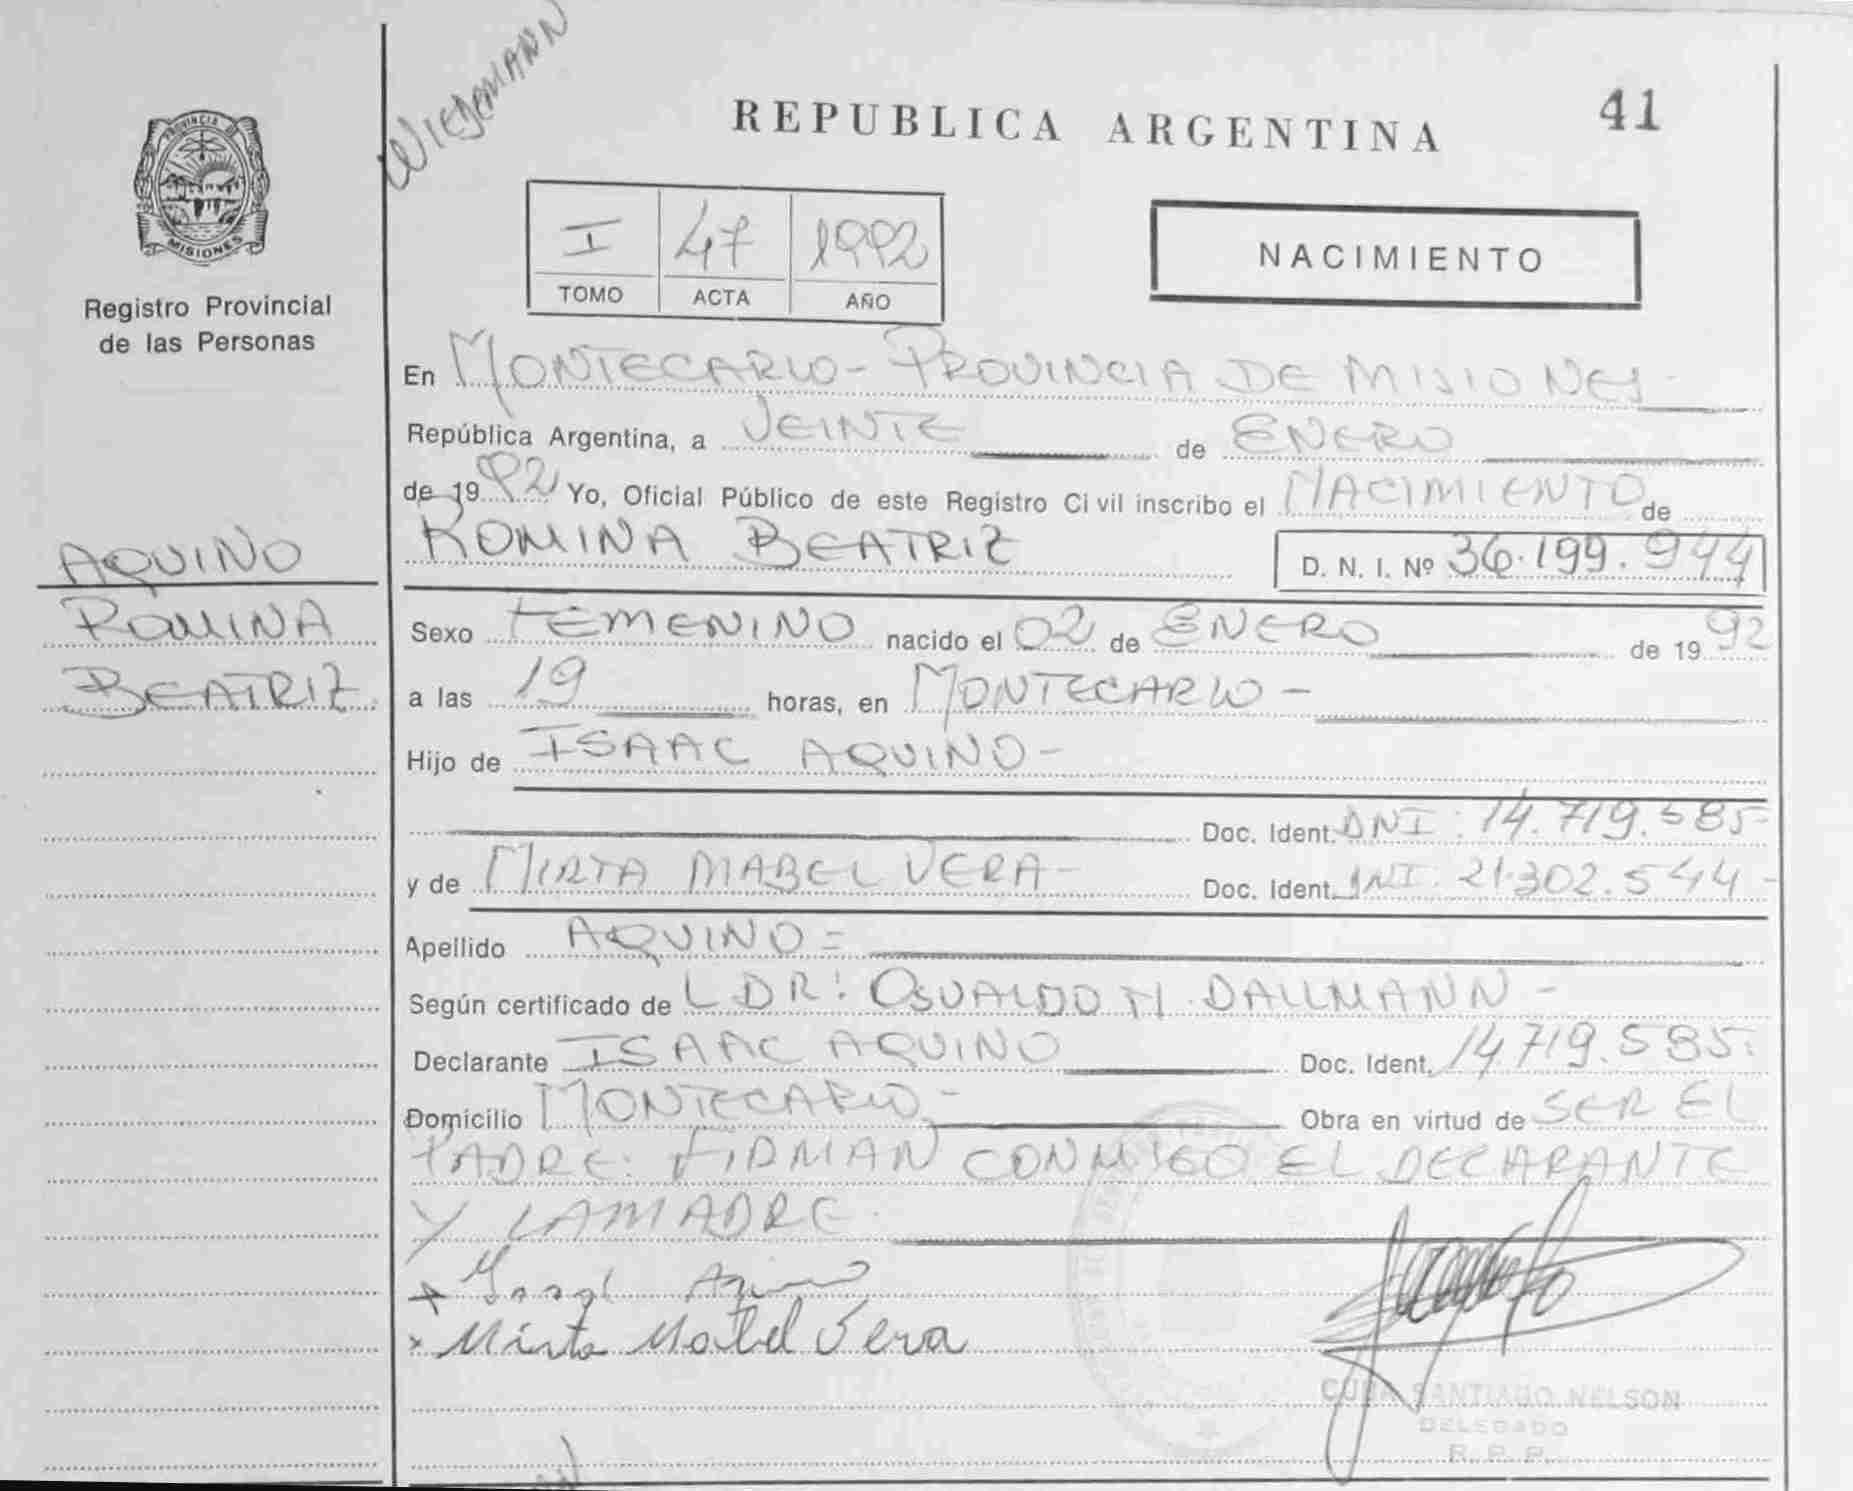 WIEDEMANN
REPUBLICA ARGENTINA
41
PROVINCIA DE
MISIONES
Registro Provincial
de las Personas
I 47 1992
TOMO ACTA AÑO
NACIMIENTO
En MONTECARLO - PROVINCIA DE MISIONES -
República Argentina, a VEINTE de ENERO
de 1992 Yo, Oficial Público de este Registro Civil inscribo el NACIMIENTO de
ROMINA BEATRIZ D. N. I. Nº 36.199.944
AQUINO
ROMINA
BEATRIZ
Sexo FEMENINO nacido el 02 de ENERO de 1992
a las 19 horas, en MONTECARLO -
Hijo de ISAAC AQUINO -
Doc. Ident. DNI: 14.719.585
y de MIRTA MABEL VERA - Doc. Ident. DNI: 21.302.544 -
Apellido AQUINO =
Según certificado de L DR: OSVALDO H. DALLMANN -
Declarante ISAAC AQUINO Doc. Ident. 14.719.585.
Domicilio MONTECARLO - Obra en virtud de SER EL
PADRE. FIRMAN CONMIGO EL DECLARANTE
Y LA MADRE.
Aquino
x Mirta Mabel Vera
SANTIAGO NELSON
DELEGADO
R. P. P.